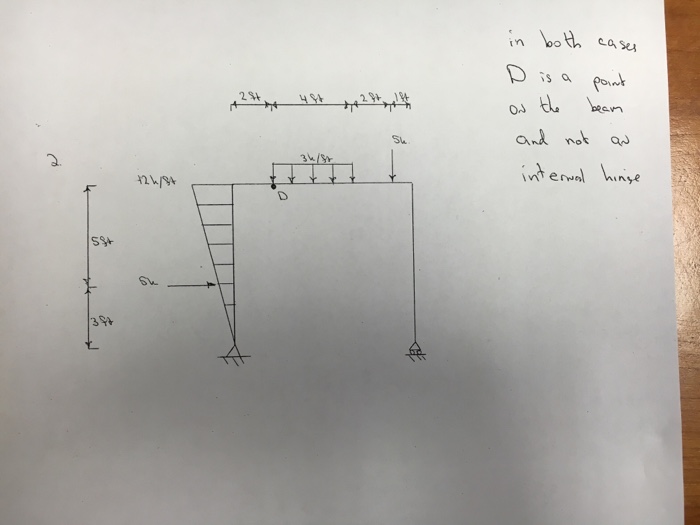 in both cases
D is a point
on the beam
and not an
internal hinge
2ft 4ft 2ft 1ft
2.
5k
12k/ft
3k/ft
D
5ft
5k
3ft